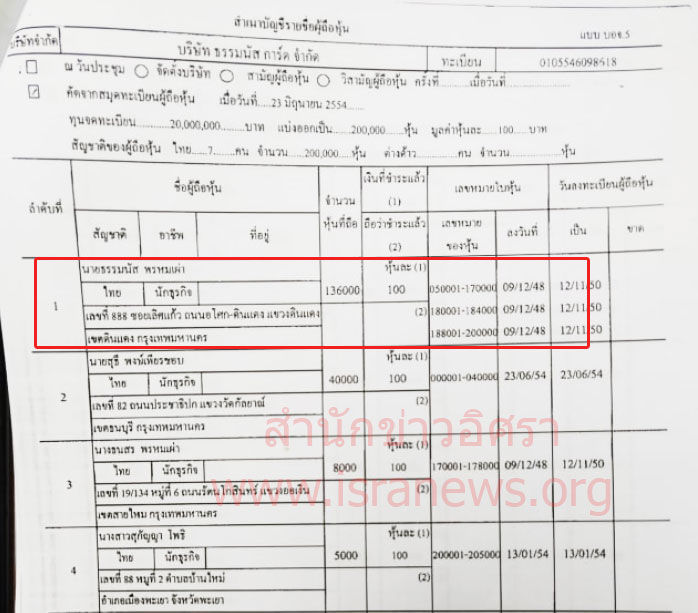 สำเนาบัญชีรายชื่อผู้ถือหุ้น
แบบ บอจ.5
บริษัทจำกัด
บริษัท ธรรมนัส การ์ด จำกัด
ทะเบียน
0105546098618
ณ วันประชุม จัดตั้งบริษัท สามัญผู้ถือหุ้น วิสามัญผู้ถือหุ้น ครั้งที่..............เมื่อวันที่..............
คัดจากสมุดทะเบียนผู้ถือหุ้น เมื่อวันที่.....23 มิถุนายน 2554......
ทุนจดทะเบียน............20,000,000........บาท แบ่งออกเป็น......200,000......หุ้น มูลค่าหุ้นละ.....100.....บาท
สัญชาติของผู้ถือหุ้น ไทย....7....คน จำนวน......200,000....หุ้น ต่างด้าว..............คน จำนวน..............หุ้น
ลำดับที่
ชื่อผู้ถือหุ้น
สัญชาติ อาชีพ ที่อยู่
จำนวน
หุ้นที่ถือ
เงินที่ชำระแล้ว
(1)
ถือว่าชำระแล้ว
(2)
เลขหมายใบหุ้น
เลขหมาย
ของหุ้น
ลงวันที่
วันลงทะเบียนผู้ถือหุ้น
เป็น ขาด
1
นายธรรมนัส พรหมเผ่า หุ้นละ (1)
ไทย นักธุรกิจ 136000 100 050001-170000 09/12/48 12/11/50
เลขที่ 888 ซอยเลิศแก้ว ถนนอโศก-ดินแดง แขวงดินแดง (2) 180001-184000 09/12/48 12/11/50
เขตดินแดง กรุงเทพมหานคร 188001-200000 09/12/48 12/11/50
2
นายสุธี พงษ์เพียรชอบ หุ้นละ (1)
ไทย นักธุรกิจ 40000 100 000001-040000 23/06/54 23/06/54
เลขที่ 82 ถนนประชาธิปก แขวงวัดกัลยาณ์ (2)
เขตธนบุรี กรุงเทพมหานคร
สำนักข่าวอิศรา
www.isranews.org
3
นางธนสร พรหมเผ่า หุ้นละ (1)
ไทย นักธุรกิจ 8000 100 170001-178000 09/12/48 12/11/50
เลขที่ 19/134 หมู่ที่ 6 ถนนรัตนโกสินทร์ แขวงออเงิน (2)
เขตสายไหม กรุงเทพมหานคร
4
นางสาวสุกัญญา โพธิ หุ้นละ (1)
ไทย นักธุรกิจ 5000 100 200001-205000 13/01/54 13/01/54
เลขที่ 88 หมู่ที่ 2 ตำบลบ้านใหม่ (2)
อำเภอเมืองพะเยา จังหวัดพะเยา